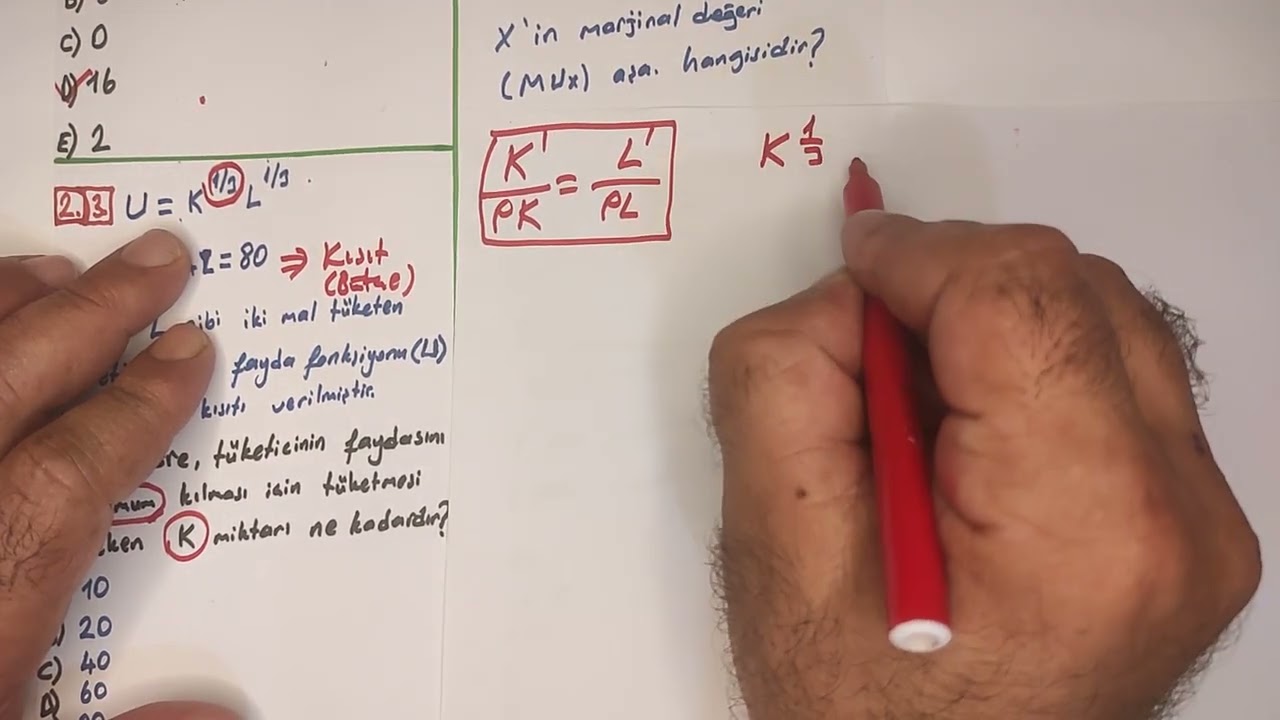 C) 0
D) 16
E) 2
2.3 U = K^1/3 L^1/3
= 80 ⇒ Kısıt
(Bütçe)
gibi iki mal tüketen
fayda fonksiyonu (U)
kısıtı verilmiştir.
tüketicinin faydasını
kılması için tüketmesi
K miktarı ne kadardır?
10
20
C) 40
D) 60
X'in marjinal değeri
(MUx) aşa. hangisidir?
K'/PK = L'/PL
K 1/3